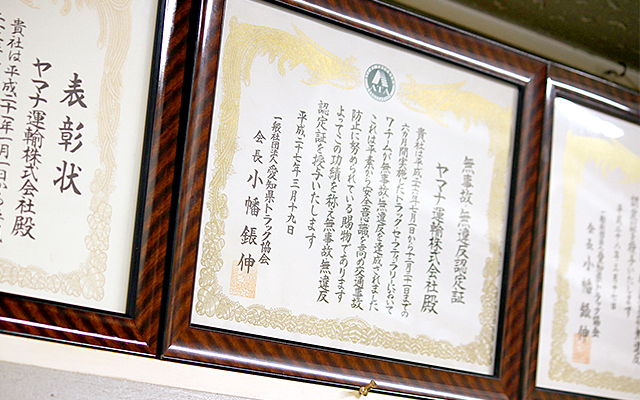 無事故・無違反認定証
ヤマナ運輸株式会社殿
貴社は平成二十六年七月一日から十二月三十一日までの
六か月間実施したトラック・セーフティラリーにおいて
チームが無事故・無違反を達成されました
これは平素から安全意識を高め交通事故
防止に努められている賜物であります
よってこの功績を称え無事故・無違反
認定証を授与いたします
平成二十七年三月十九日
一般社団法人愛知県トラック協会
会長 小幡鋹伸
表彰状
ヤマナ運輸株式会社殿
貴社は平成二十一年一月一日から
一般社団法人愛知県トラック協会
会長 小幡鋹伸